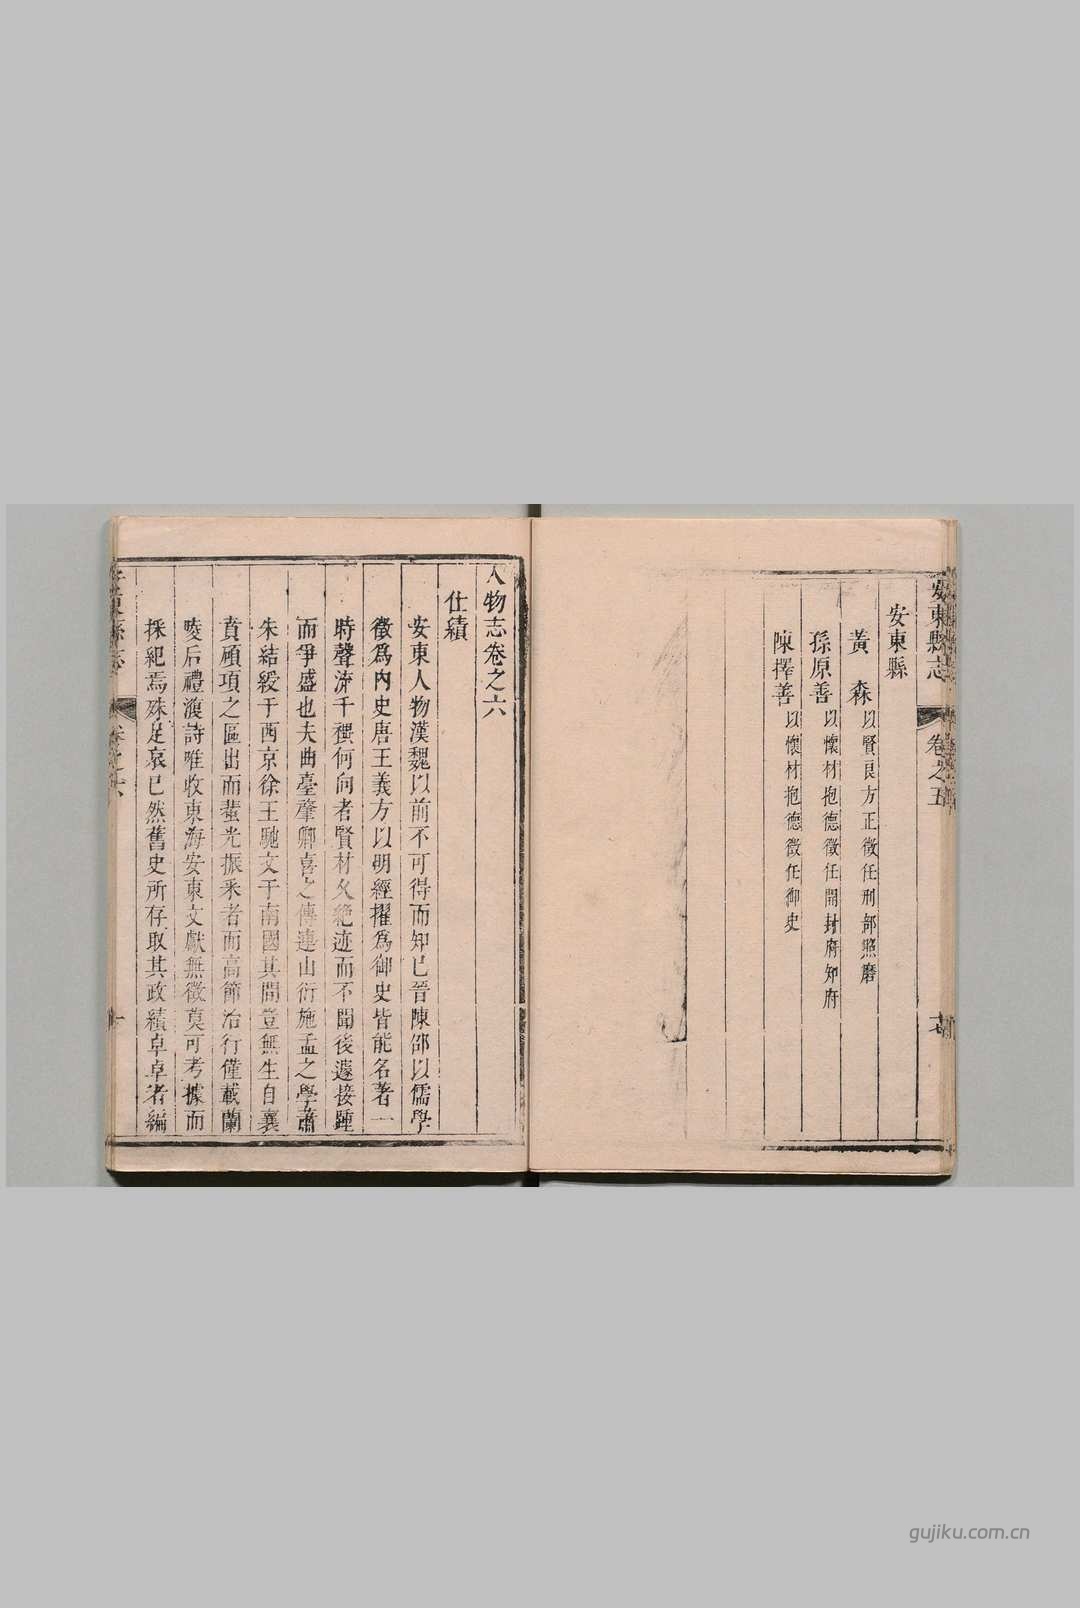 安東縣志 卷之五
安東縣
黃 森 以賢良方正徵任刑部照磨
孫原善 以懷材抱德徵任開封府知府
陳擇善 以懷材抱德徵任御史
人物志卷之六
仕績
安東人物漢魏以前不可得而知已晉陳邵以儒學
徵爲內史唐王義方以明經擢爲御史皆能名著一
時聲流千禩何向者賢材久絶迹而不聞後遽接踵
而爭盛也夫曲臺肇卿喜之傳連山衍施孟之學蕭
朱結綬于西京徐王馳文于南國其間豈無生自襄
賁碩項之區出而蜚光振釆者而高節治行僅載蘭
陵后禮潑詩唯收東海安東文獻無徵莫可考據而
採紀焉殊足哀已然舊史所存取其政績卓卓者編
安東縣志 卷之六 一
gujiku.com.cn